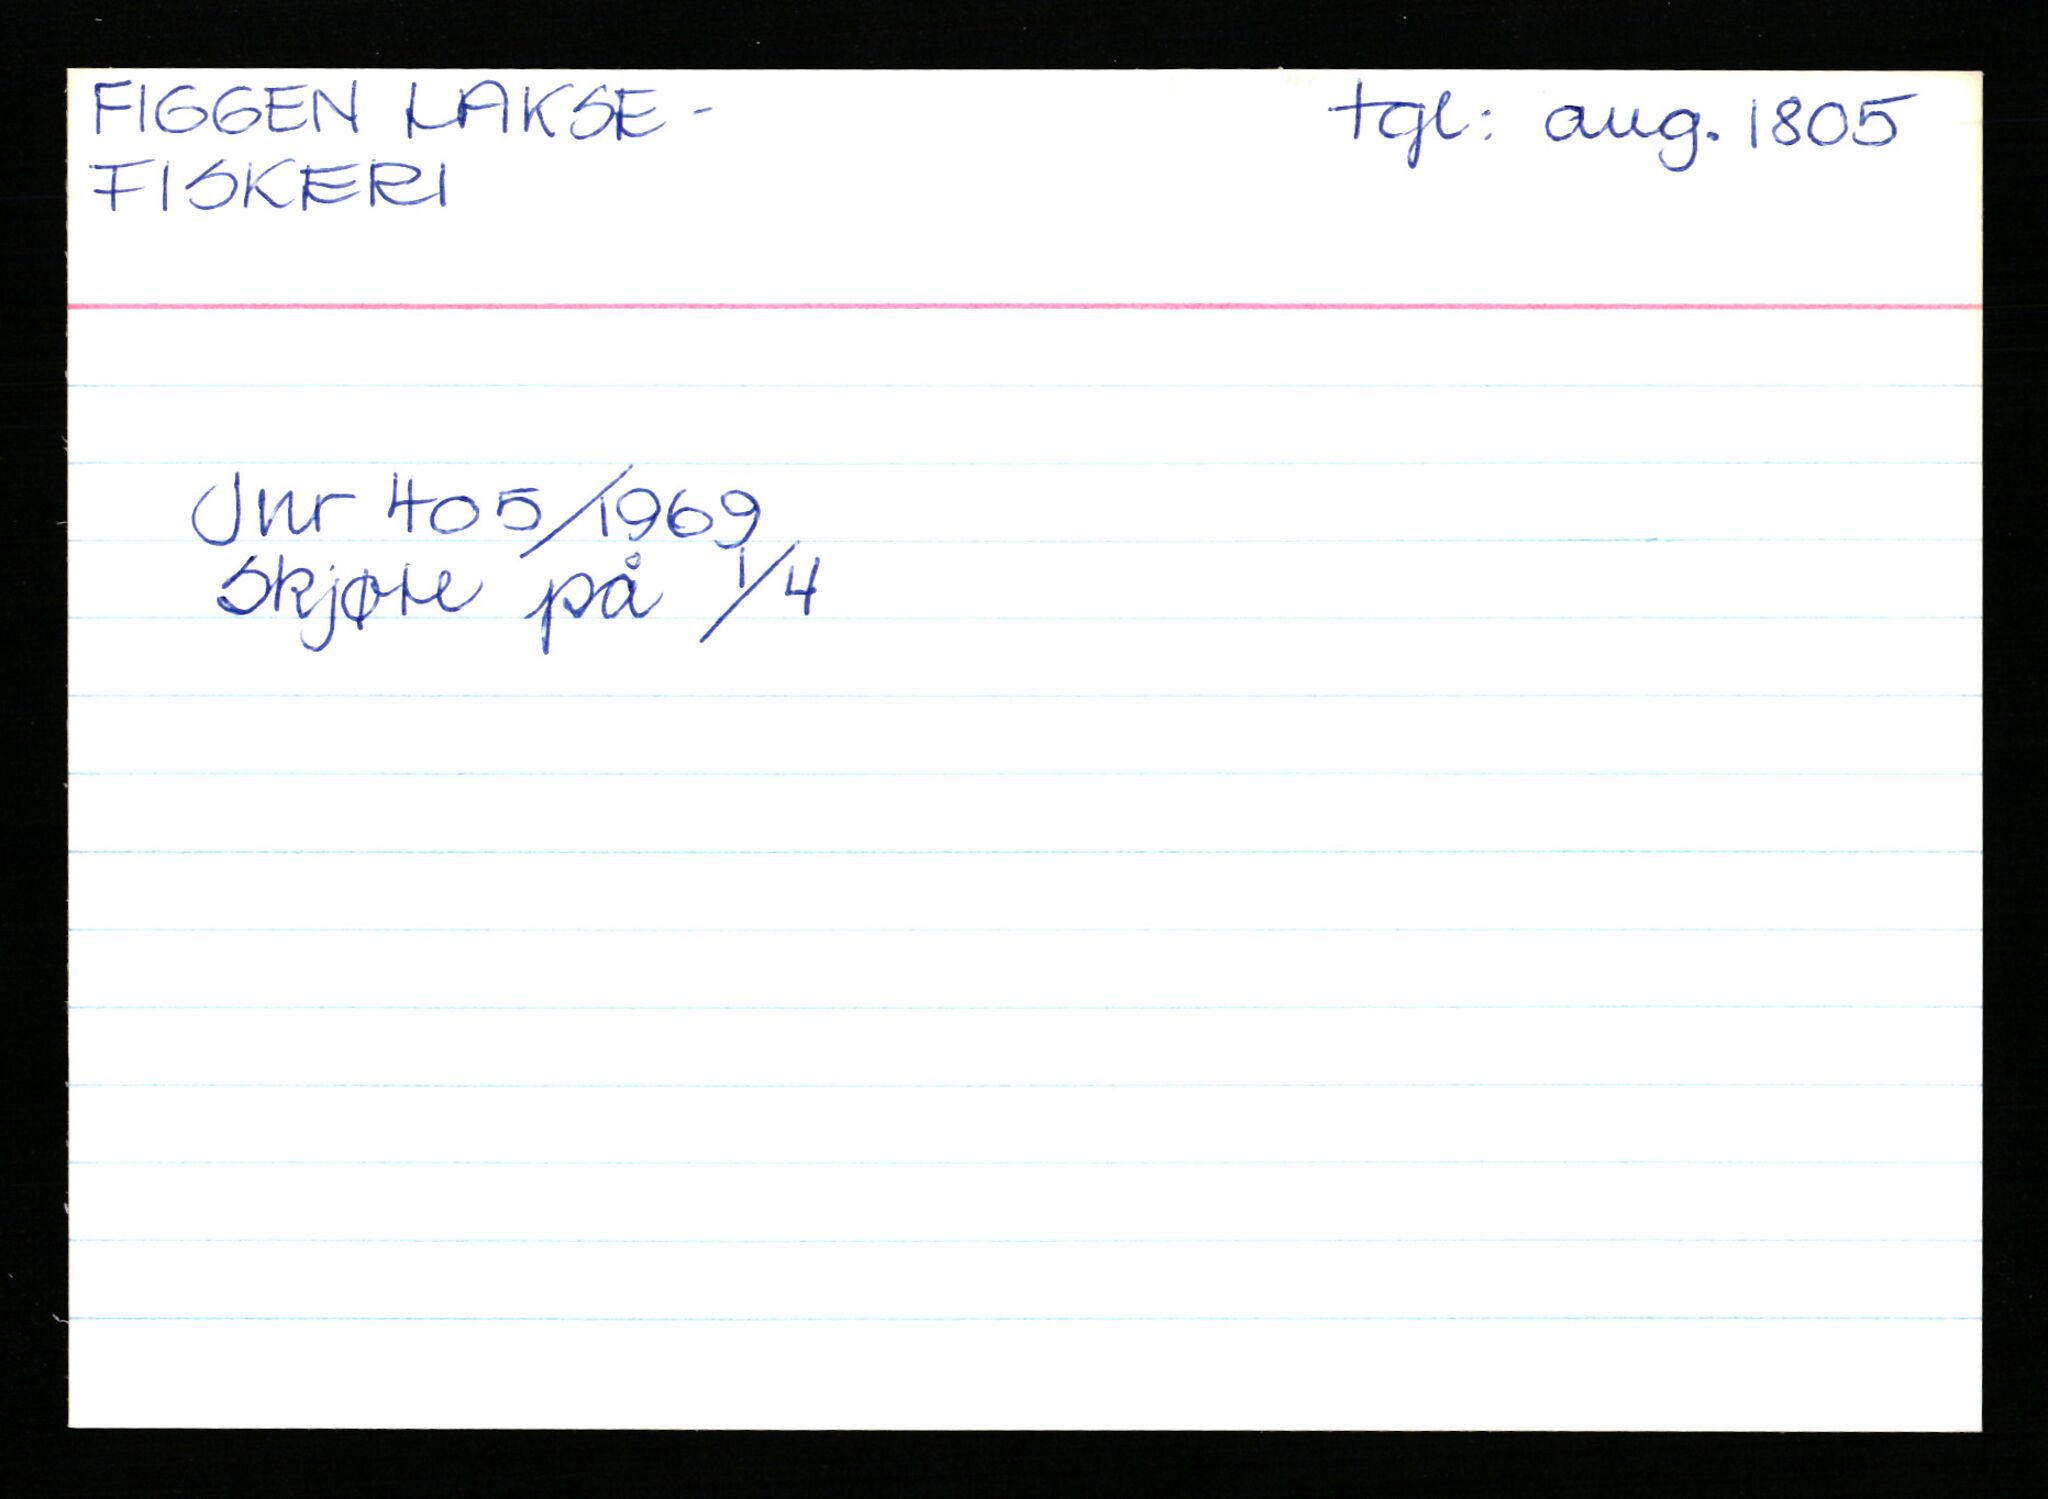 FIGGEN LAKSE-
FISKERI
tgl: aug. 1805
Jnr 405/1969
Skjøte på 1/4